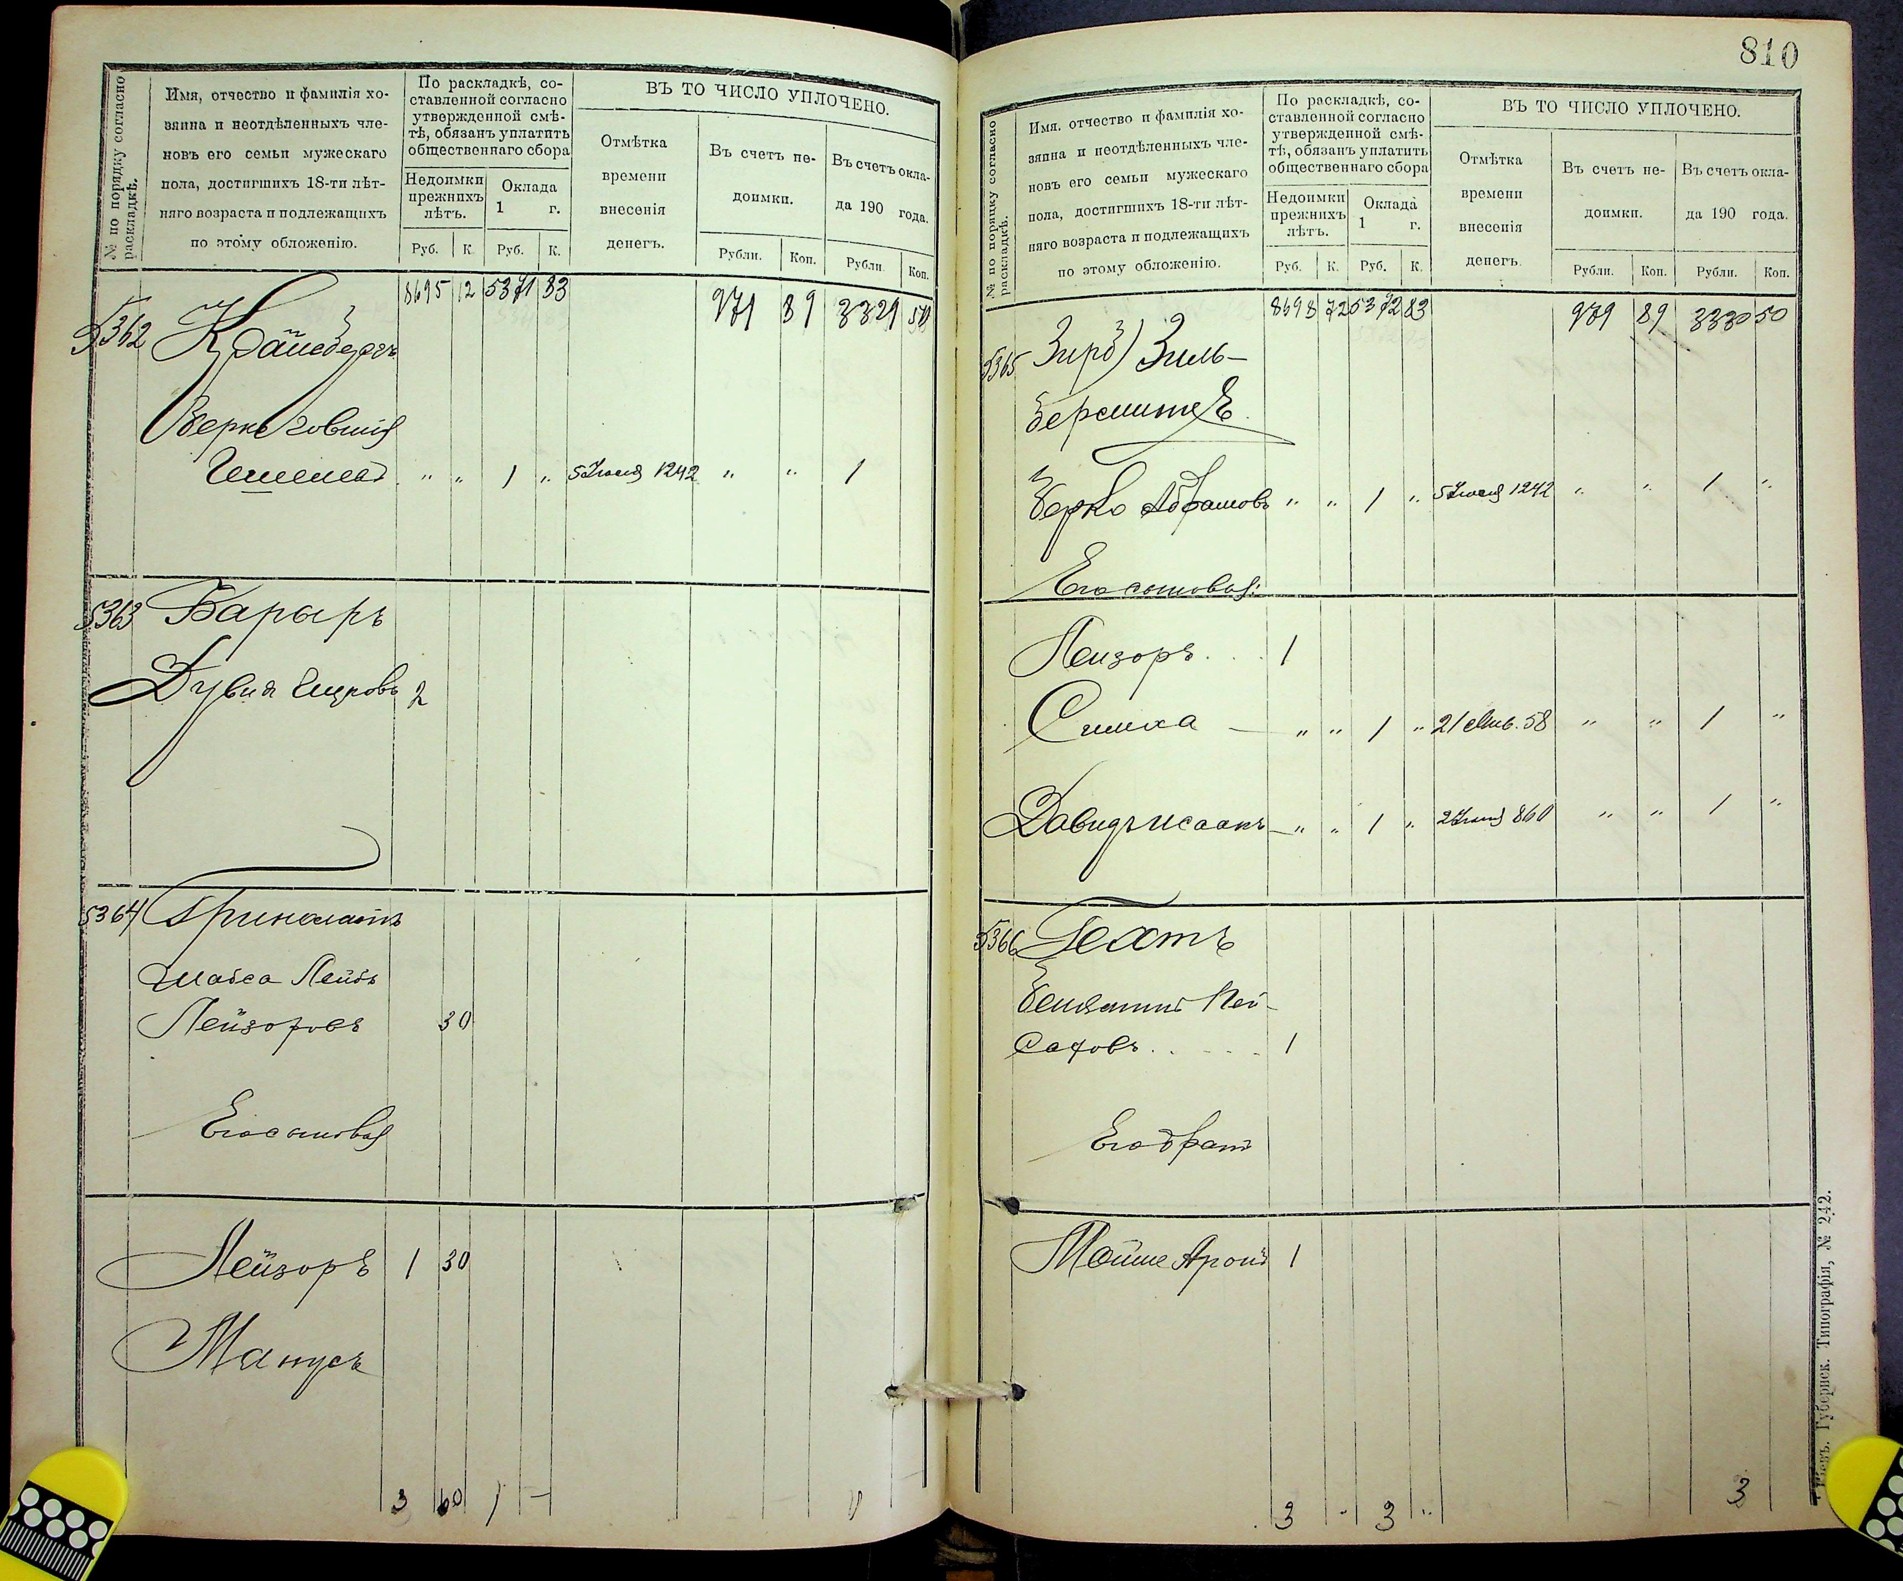 № по порядку согласно раскладкѣ.
Имя, отчество и фамилія хо-
зяина и неотдѣленныхъ чле-
новъ его семьи мужескаго
пола, достигшихъ 18-ти лѣт-
няго возраста и подлежащихъ
по этому обложенію.
По раскладкѣ, со-
ставленной согласно
утвержденной смѣ-
тѣ, обязанъ уплатить
общественнаго сбора
Недоимки
прежнихъ
лѣтъ.
Оклада
1 г.
Руб. К. Руб. К.
ВЪ ТО ЧИСЛО УПЛОЧЕНО.
Отмѣтка
времени
внесенія
денегъ.
Въ счетъ не-
доимки.
Въ счетъ окла-
да 190 года.
Рубли. Коп. Рубли Коп.
8695 12 5371 83 971 89 3329 50
5362
Берко
" " 1 " 1242 " " 1
5363 Барыръ
2
5364
Шабса Лейбъ
Лейзоровъ 30
Его сыновья
Лейзоръ 1 30
Манусъ
3 60 1 —
810
№ по порядку согласно раскладкѣ.
Имя, отчество и фамилія хо-
зяина и неотдѣленныхъ чле-
новъ его семьи мужескаго
пола, достигшихъ 18-ти лѣт-
няго возраста и подлежащихъ
по этому обложенію.
По раскладкѣ, со-
ставленной согласно
утвержденной смѣ-
тѣ, обязанъ уплатить
общественнаго сбора
Недоимки
прежнихъ
лѣтъ.
Оклада
1 г.
Руб. К. Руб. К.
ВЪ ТО ЧИСЛО УПЛОЧЕНО.
Отмѣтка
времени
внесенія
денегъ.
Въ счетъ не-
доимки.
Въ счетъ окла-
да 190 года.
Рубли. Коп. Рубли. Коп.
8698 72 5372 83 89 3330 50
5365 Зиль-
Берко Абрамовъ " " 1 " 1242 " " 1 "
Его сыновья:
Лейзоръ . . . 1
Симха — " " 1 " 21 58 " " 1 "
Давидъ Исаакъ — " " 1 " 860 " " 1 "
5366 Гехтъ
1
Его братъ
Мойше Аронъ 1
3 " 3 " 3
Губернск. Типографія, № 242.